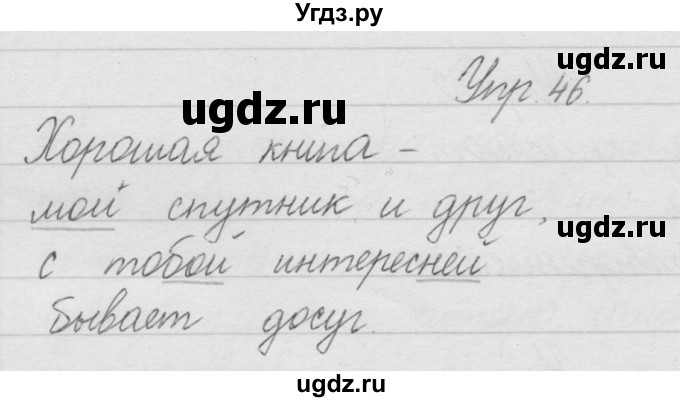 Угдз.ру
ugdz.ru
ugdz.ru
Упр. 46.
ugdz.ru
Хорошая книга –
мой спутник и друг,
ugdz.ru
с тобой интересней
бывает досуг.
ugdz.ru
ugdz.ru